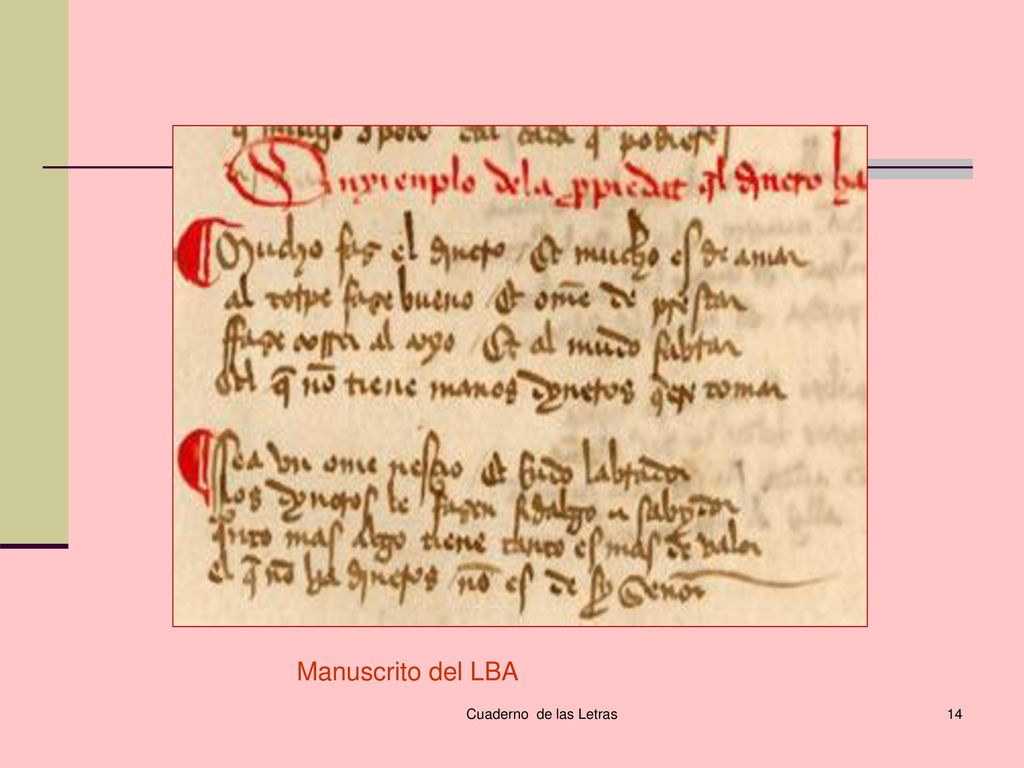 Enxienplo dela propiedat ql dinero ha
Mucho faz el dinero Et mucho es de amar
al torpe faze bueno Et ome de prestar
ffaze correr al coxo Et al mudo fablar
el q no tiene manos dyneros qere tomar
Sea vn ome nesçio Et rrudo labrador
los dyneros le fazen fidalgo e sabydor
qnto mas algo tiene tanto es mas de valor
el q no ha dineros no es de sy Señor
Manuscrito del LBA
Cuaderno de las Letras
14